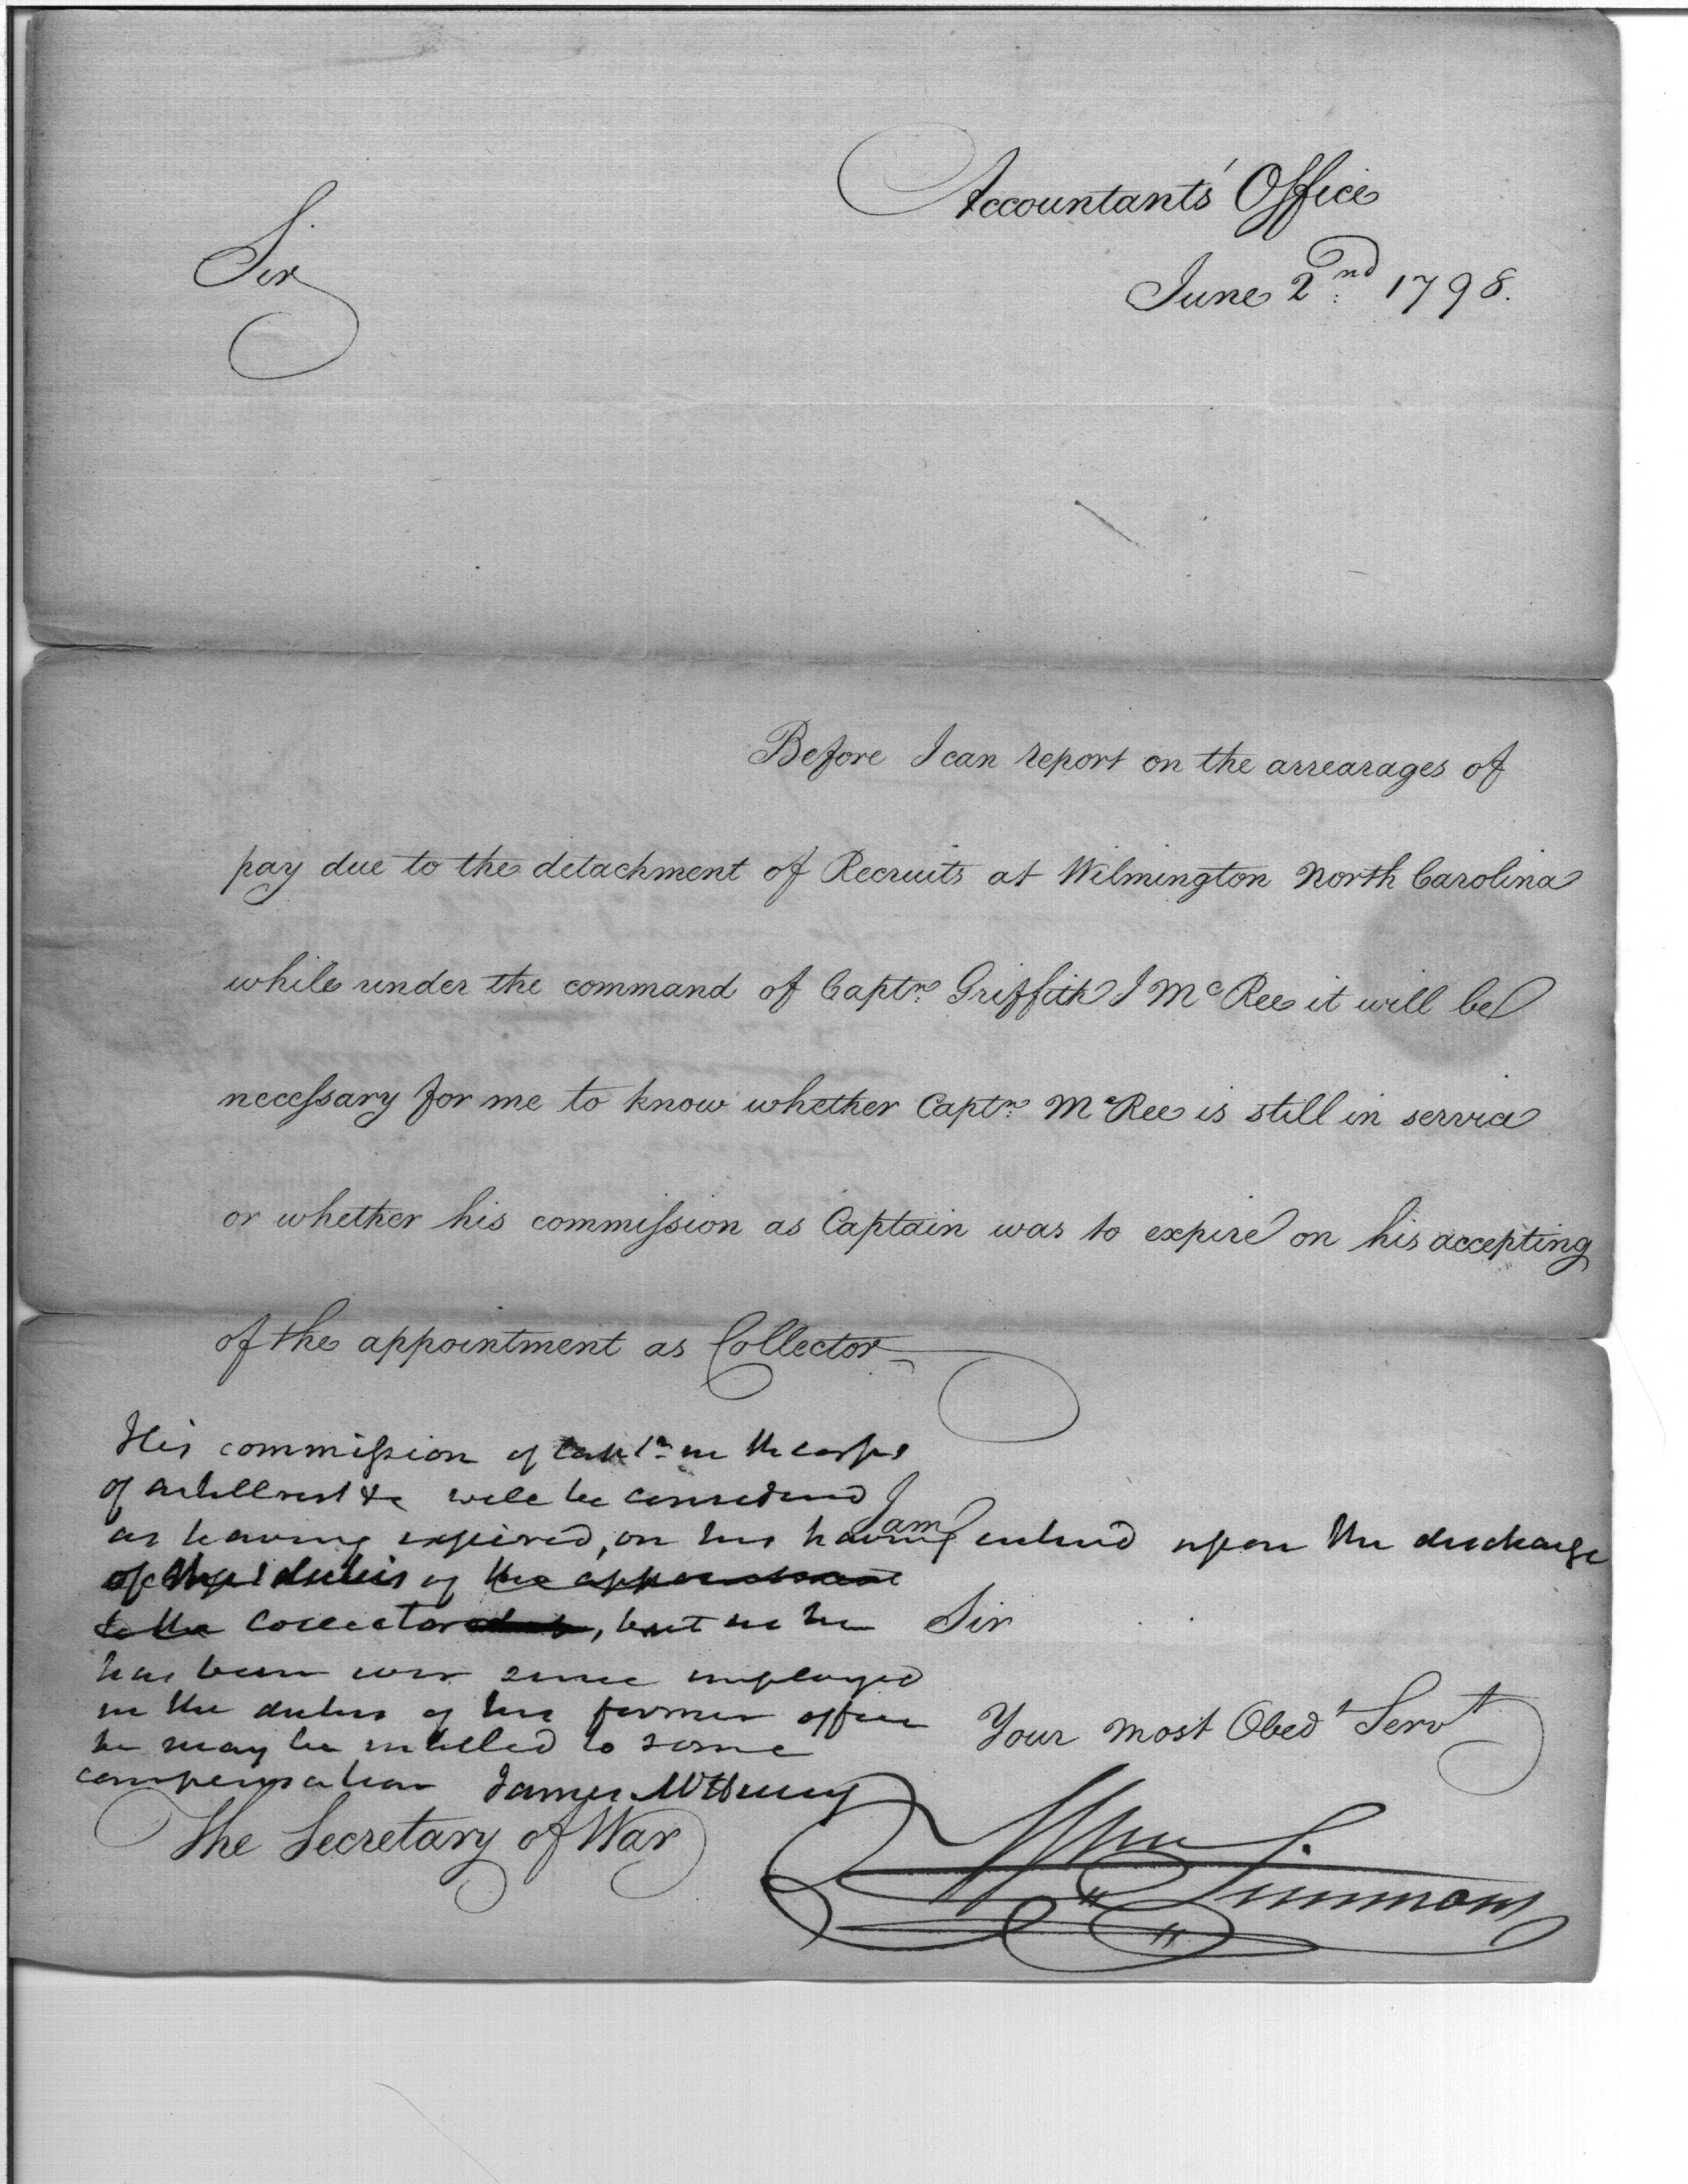 Accountants' Office
June 2nd 1798.
Sir
Before I can report on the arrearages of
pay due to the detachment of Recruits at Wilmington North Carolina
while under the command of Captn. Griffith J McRee it will be
necessary for me to know whether Captn. McRee is still in service
or whether his commission as Captain was to expire on his accepting
of the appointment as Collector
His commission of Captn. in the corps
of artillerist &c will be considered
I am
as having expired, on his having entered upon the discharge
of the duties of his appointment
to the Collector, but as he
has been ever since employed
in the duties of his former office
he may be entitled to some
compensation James McHenry
Sir
Your most Obedt Servt
The Secretary of War
Wm Simmons